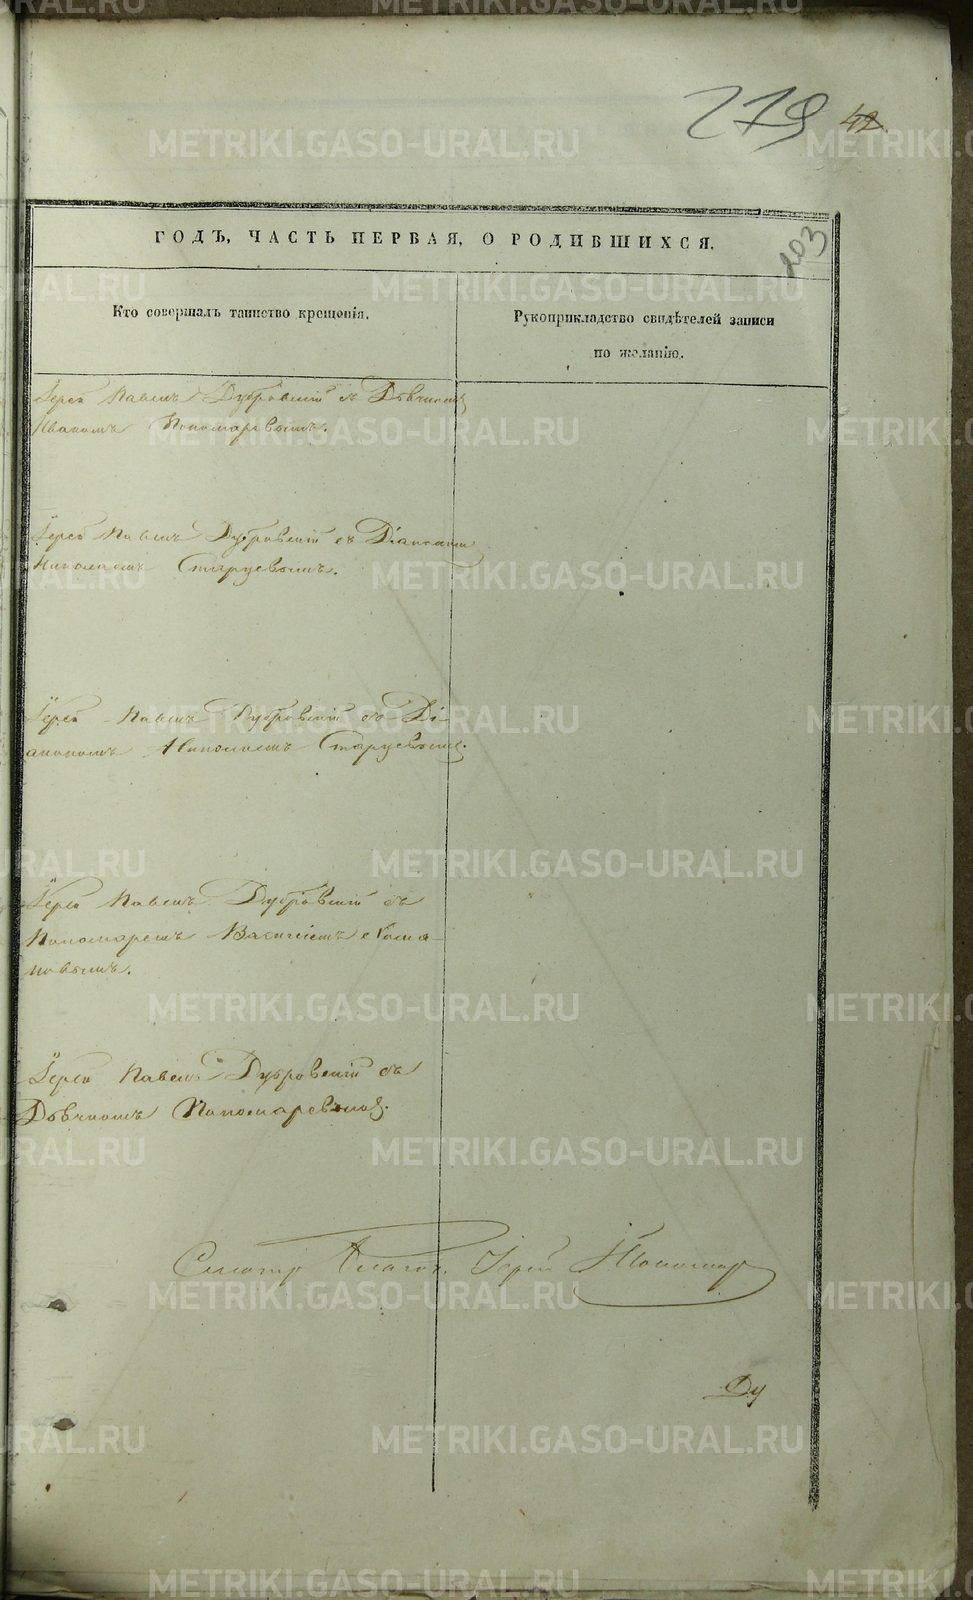 279 42
203
ГОДЪ, ЧАСТЬ ПЕРВАЯ, О РОДИВШИХСЯ.
Кто совершалъ таинство крещенія.
Рукоприкладство свидѣтелей записи
по желанію.
Іерей Павелъ Дубровскій съ Дьячкомъ
Иваномъ Пономаревымъ.
Іерей Павелъ Дубровскій съ Діакономъ
Николаемъ Старцевымъ.
Іерей Павелъ Дубровскій съ Ді-
акономъ Николаемъ Старцевымъ.
Іерей Павелъ Дубровскій съ
Пономаремъ Василіемъ
Іерей Павелъ Дубровскій съ
Дьячкомъ Пономаревымъ.
Іерей Пономар
Ду
METRIKI.GASO-URAL.RU